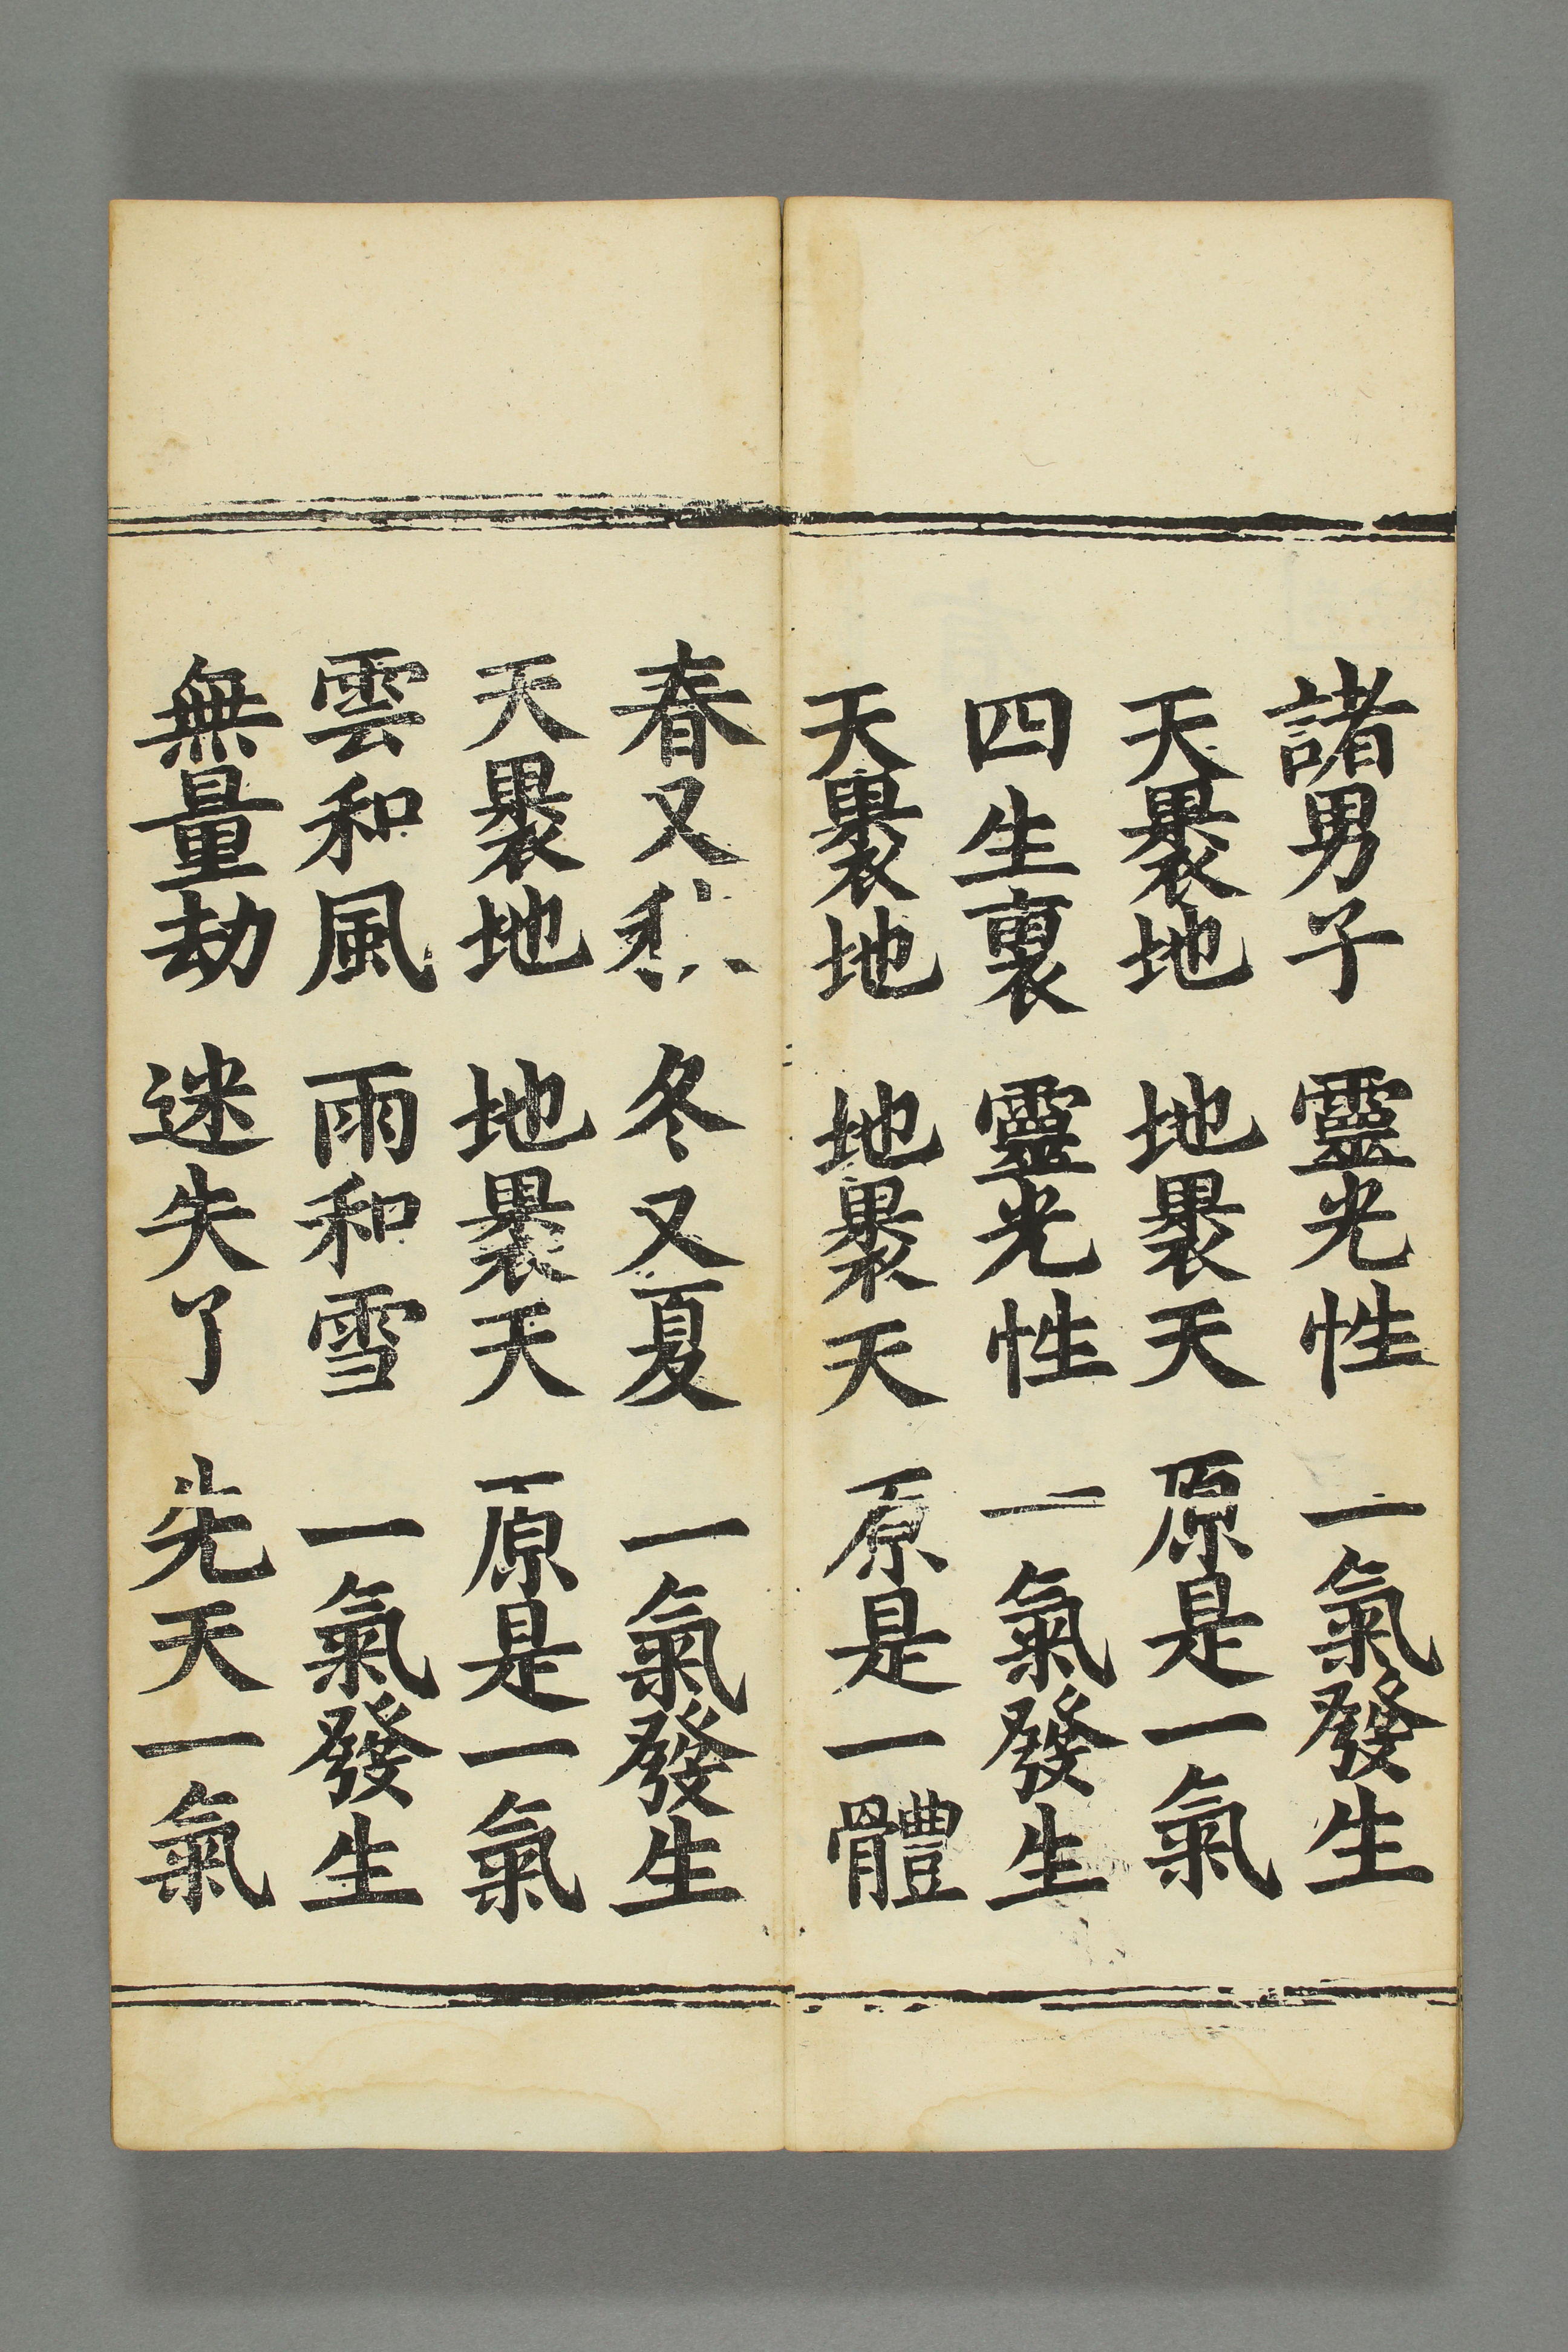 諸男子 靈光性 一氣發生
天裹地 地裹天 原是一氣
四生裏 靈光性 一氣發生
天裹地 地裹天 原是一體
春又秋 冬又夏 一氣發生
天裹地 地裹天 原是一氣
雲和風 雨和雪 一氣發生
無量劫 迷失了 先天一氣